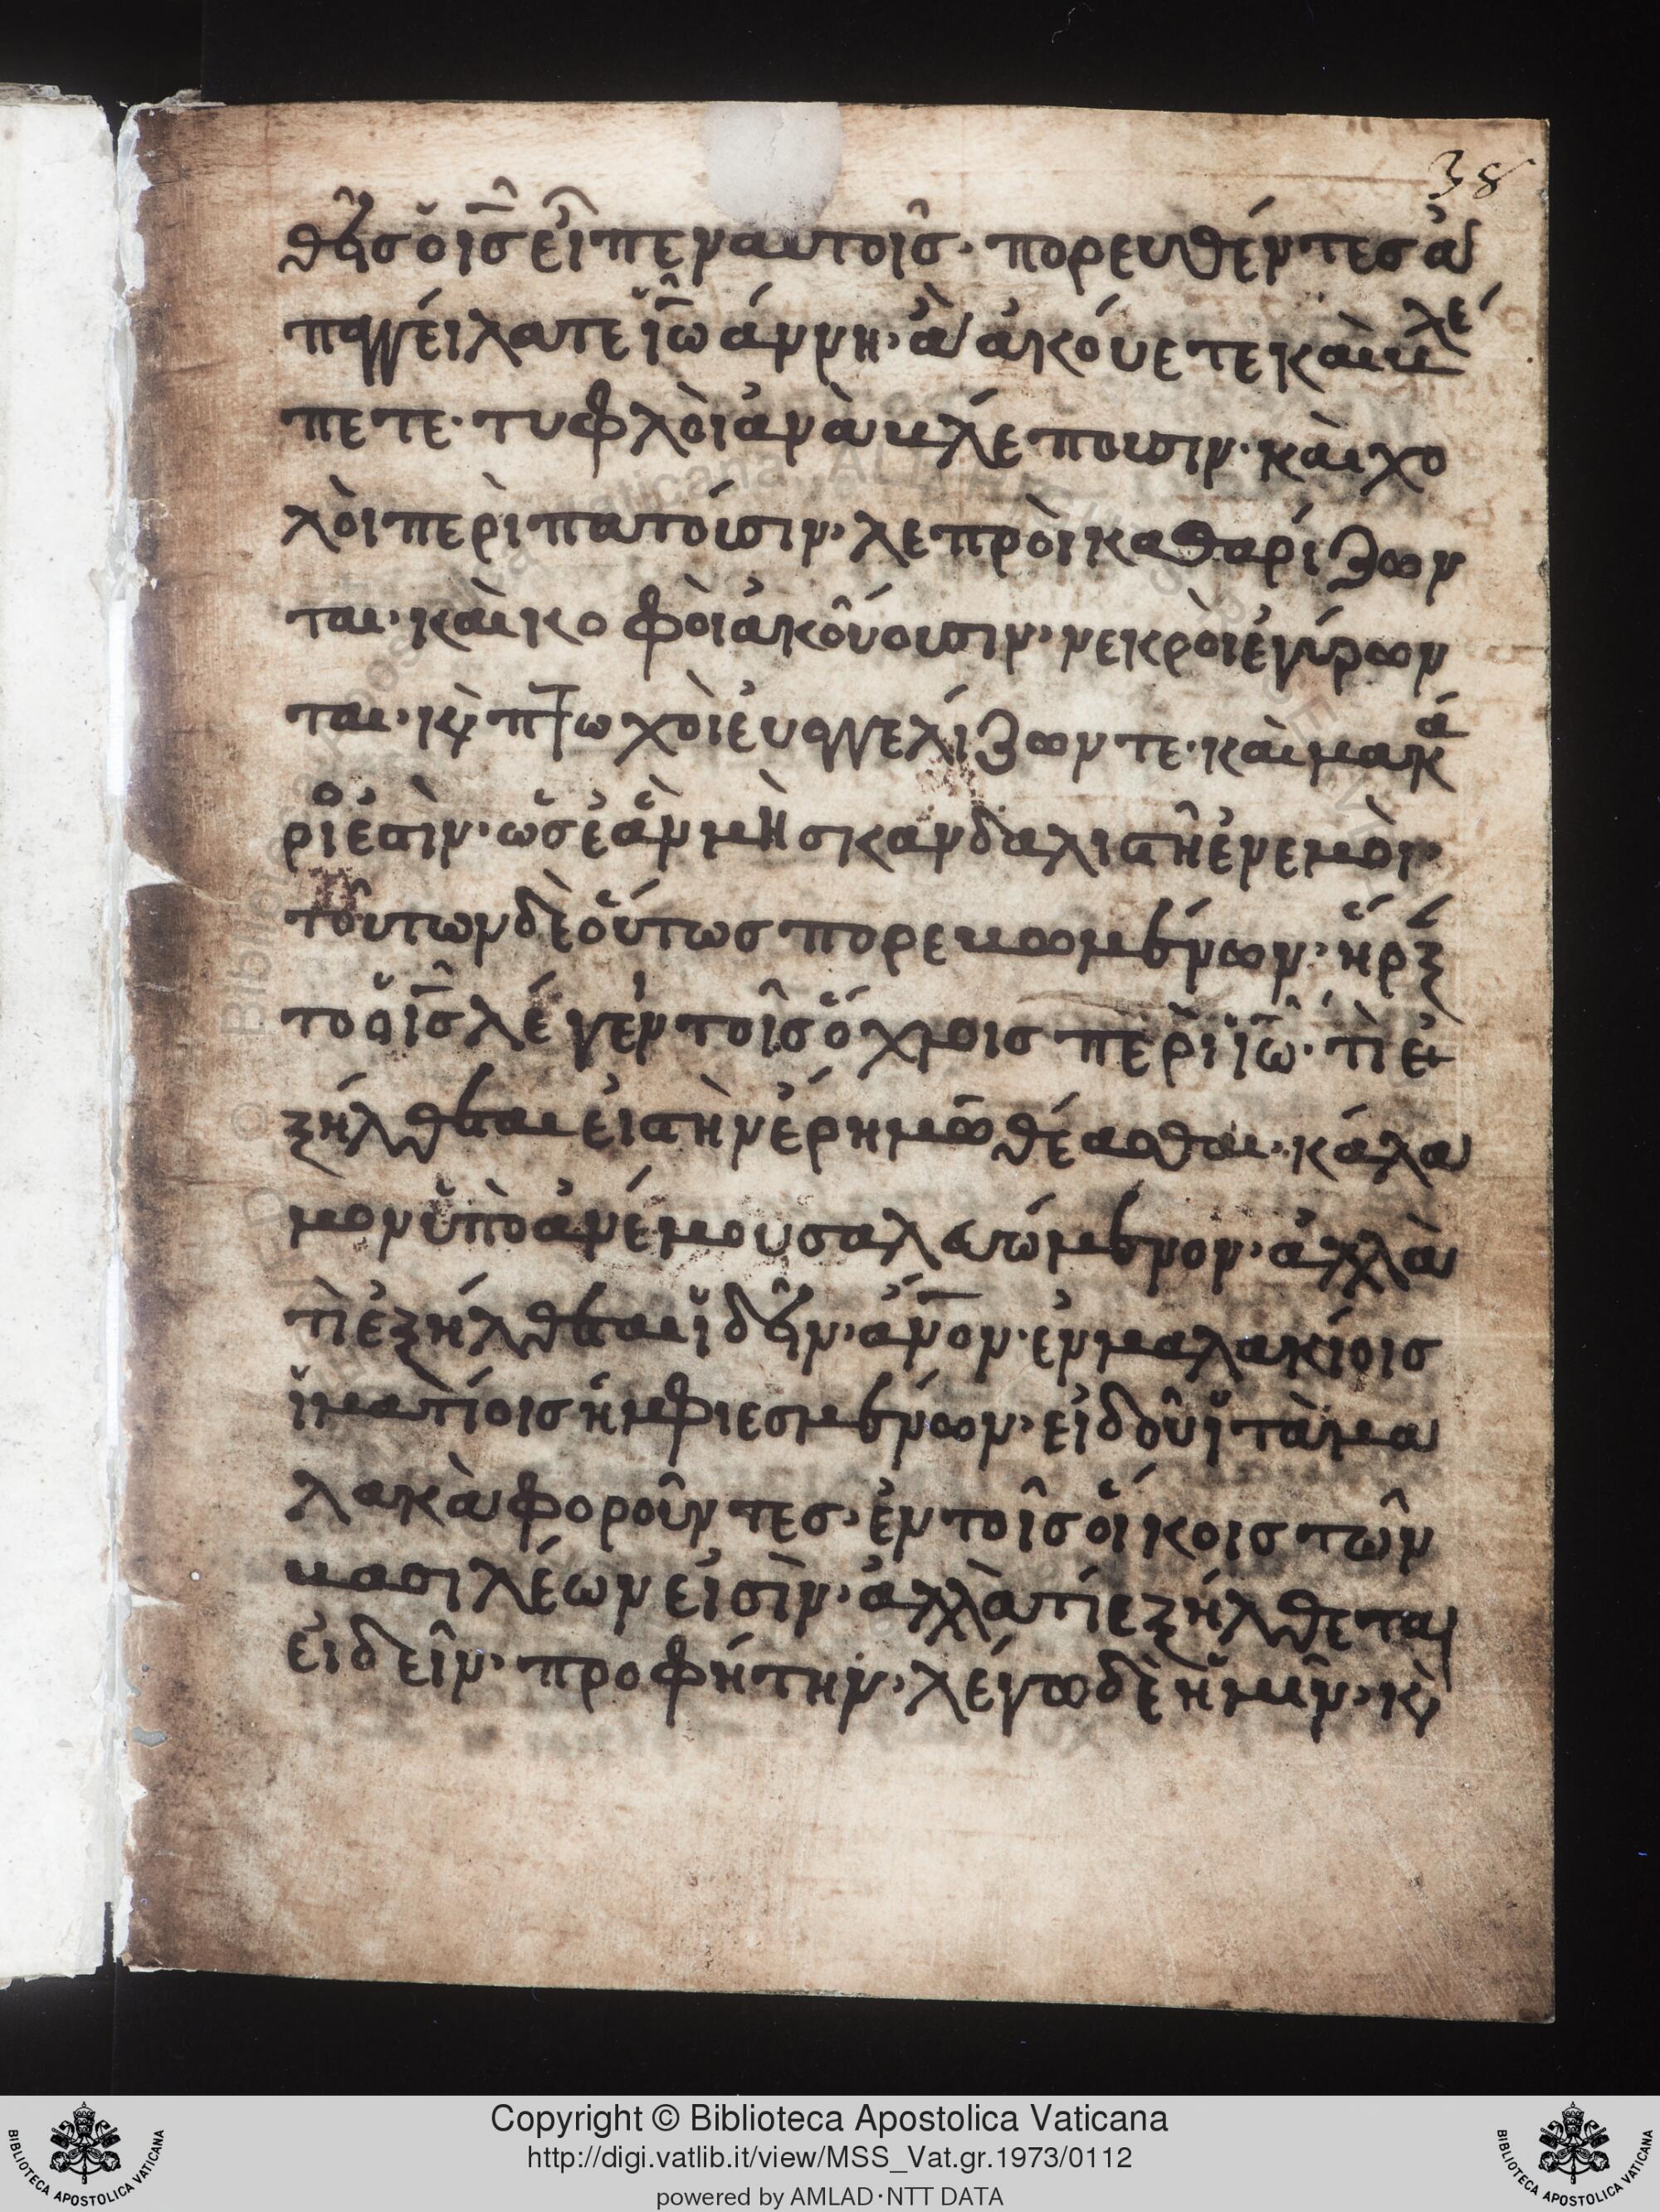 38
θεὶς ὁ ις εἶπεν αυτοῖς· πορευθέντες ἀ
παγγείλατε ἰω̅άννη· ἃ ἀκόυετε καὶ βλέ
πετε· τυφλὸι ἀναβλέπουσιν· καὶ χο
λὸι περὶπατόυσιν· λεπρὸι καθαρίζων
ται· καὶ κοφὸι ἀκούουσιν· νεκροὶ ἐγύρων
ται· κὲ πτωχὸι ἐυαγγελίζωντε· καὶ μακά
ριὸ ἐσὶν· ὡς ἐὰν μὴ σκανδαλιστῆ ἐν εμὸι·
τοῦτων δὲ ὁύτως πορευωμένων· ἤρξ
το ὁ ις λέγεν τοῖς ὄχλοις περὶ ἰω̅· τὶ ἐ
ξήλθεται εἰς τὴν ἐρημω θέασθαι· κάλα
μον ὑπὸ ἀνέμου σαλευώμενον· ἀλλὰ
τὶ ἐξήλθεται ἰδεῖν· ἄν̅ον· ἐν μαλακίοις
ἱματίοις ἠμφιεσμένων· εἰδοῦ ἱ τὰ μα
λακὰ φοροῦντες· ἐν τοῖς οἴκοις τῶν
βασιλέων εἰσὶν· ἀλλὰ τί εξήλθεται
εἰδεῖν· προφήτην· λέγω δὲ ἡμῖν· κὲ
Copyright © Biblioteca Apostolica Vaticana
http://digi.vatlib.it/view/MSS_Vat.gr.1973/0112
powered by AMLAD·NTT DATA
BIBLIOTECA APOSTOLICA VATICANA
BIBLIOTECA APOSTOLICA VATICANA